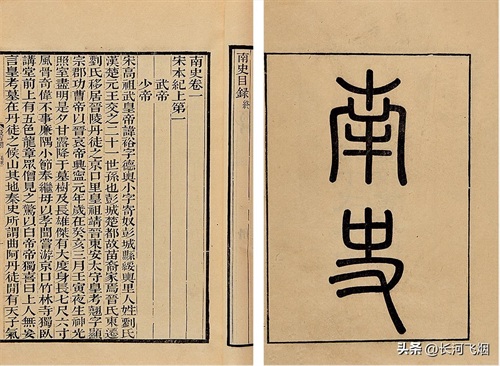 南史
南史目錄 終
南史卷一
宋本紀上第一
武帝
少帝
宋高祖武皇帝諱裕字德輿小字寄奴彭城縣綏輿里人姓劉氏
漢楚元王交之二十一世孫也彭城楚都故苗裔家焉晉氏東遷
劉氏移居晉陵丹徒之京口里皇祖靖晉東安太守皇考翹字顯
宗郡功曹帝以晉哀帝興寧元年歲在癸亥三月壬寅夜生神光
照室盡明是夕甘露降于墓樹及長雄傑有大度身長七尺六寸
風骨奇偉不事廉隅小節奉繼母以孝聞嘗游京口竹林寺獨臥
講堂前上有五色龍章眾僧見之驚以白帝帝獨喜曰上人無妄
言皇考墓在丹徒之候山其地秦史所謂曲阿丹徒間有天子氣
头条 @长河飞烟